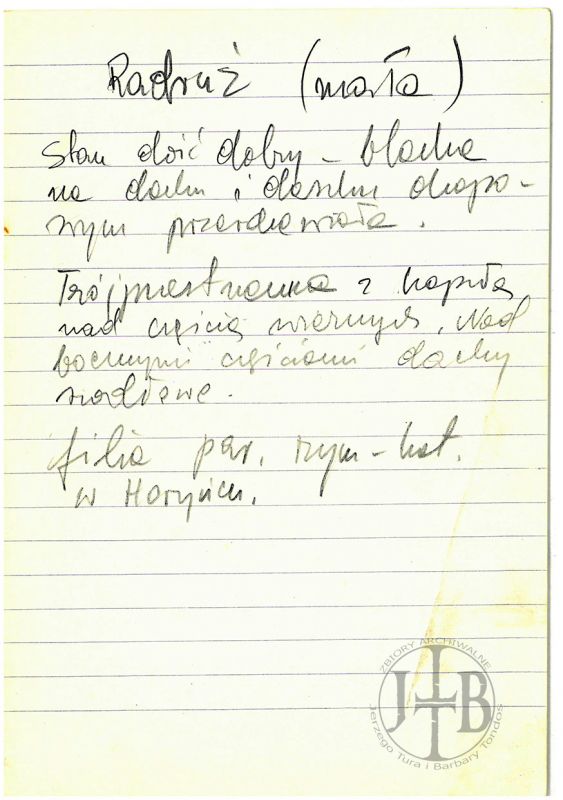 Radruż (mała)
Stan dość dobry - blacha
na dachu i daszku okapo-
wym przerdzewiała.
Trójprzestrzenna z kopułą
nad częścią wiernych. Nad
bocznymi częściami dachy
siodłowe.
filia par. rzym-kat.
w Horyńcu.
ZBIORY ARCHIWALNE
JTB
Jerzego Tura i Barbary Tondos